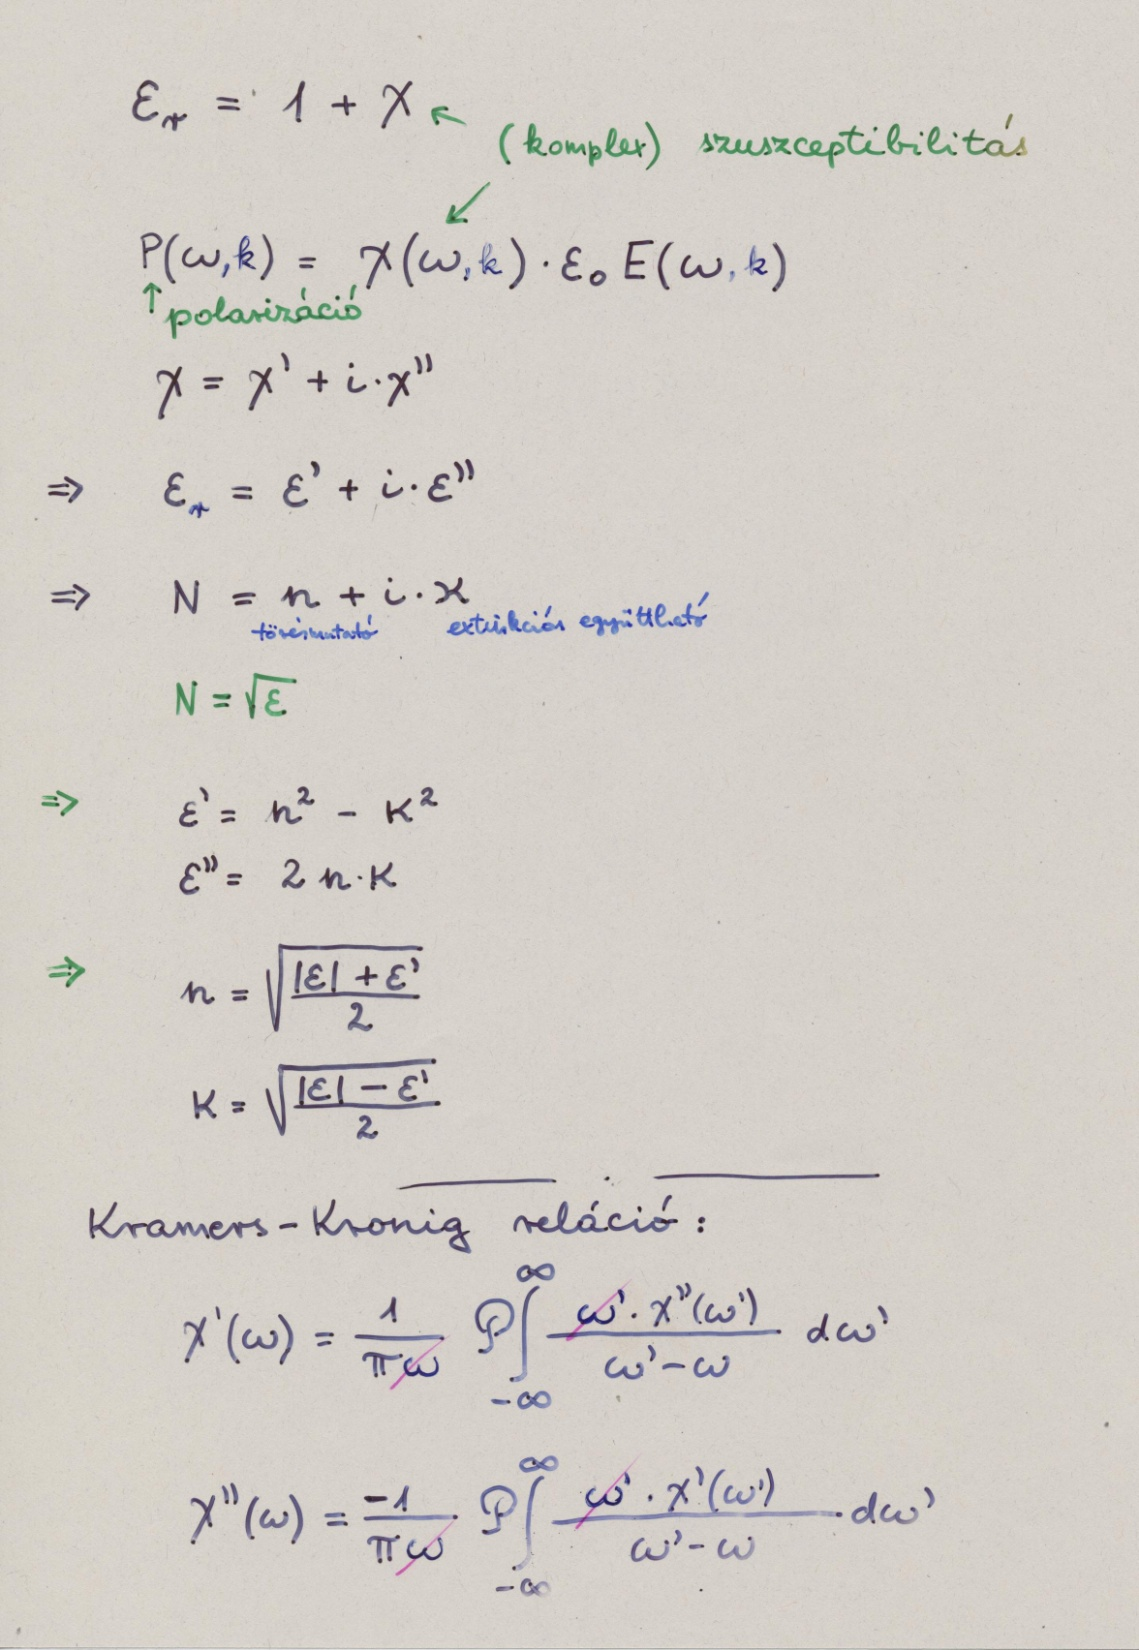 εᵣ = 1 + χ
(komplex) szuszceptibilitás
P(ω,k) = χ(ω,k) · ε₀ E(ω,k)
↑ polarizáció
χ = χ' + i·χ''
⇒ εᵣ = ε' + i·ε''
⇒ N = n + i·ϰ
törésmutató extinkciós együttható
N = √ε
⇒ ε' = n² − κ²
ε'' = 2 n·κ
⇒ n = √((|ε| + ε')/2)
κ = √((|ε| − ε')/2)
Kramers-Kronig reláció:
χ'(ω) = 1/(πω) P∫_{-∞}^{∞} (ω'·χ''(ω'))/(ω'−ω) dω'
χ''(ω) = −1/(πω) P∫_{-∞}^{∞} (ω'·χ'(ω'))/(ω'−ω) dω'